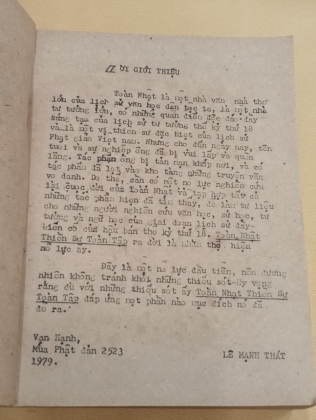 LỜI GIỚI THIỆU
Toàn Nhật là một nhà văn nhà thơ
lớn của lịch sử văn học dân tộc ta, là một nhà
tư tưởng lớn, có những quan điểm độc đáo đầy
sáng tạo của lịch sử tư tưởng thế kỷ thứ 18
và là một vị thiền sư đặc biệt của lịch sử
Phật giáo Việt nam. Nhưng cho đến ngày nay, tên
tuổi và sự nghiệp ông đã bị vùi lấp và quên
lãng. Tác phẩm ông bị tản mạn khắp nơi, và có
tác phẩm đã lọt vào kho tàng những truyện văn
vô danh. Do thế, cần có một nỗ lực nghiên cứu
lại cuộc đời của Toàn Nhật và tập hợp tất cả
những tác phẩm hiện đã tìm thấy, để làm tư liệu
cho những người nghiên cứu văn học, sử học, tư
tưởng và ngữ học của giai đoạn lịch sử đầy
biến cố của hậu bán thế kỷ thứ 18. Toàn Nhật
Thiền Sư Toàn Tập ra đời là nhằm thể hiện
nỗ lực ấy.
Đây là một nỗ lực đầu tiên, nên đương
nhiên không tránh khỏi những thiếu sót. Hy vọng
rằng dù với những thiếu sót ấy Toàn Nhật Thiền Sư
Toàn Tập đáp ứng một phần nào mục đích nó đã
đề ra.
Vạn Hạnh,
Mùa Phật đản 2523
1979.
LÊ MẠNH THÁT